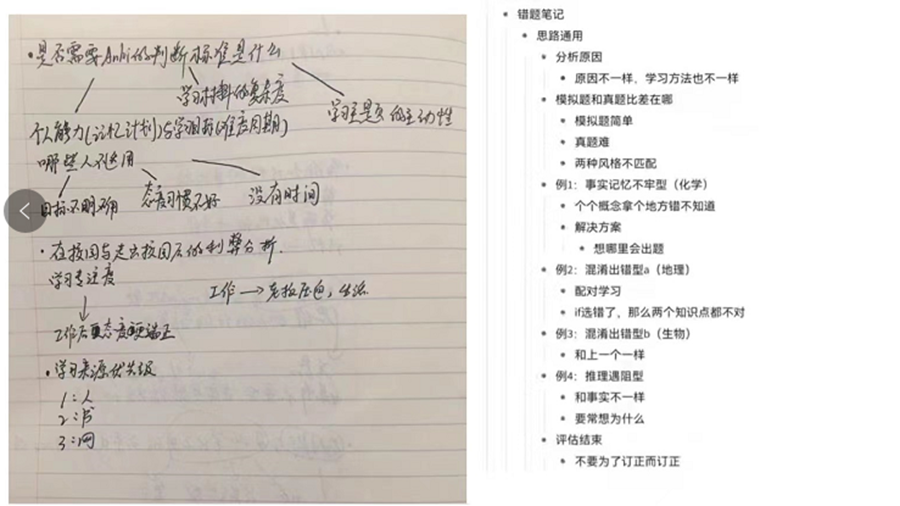 ·是否需要Anki的判断标准是什么
学习材料的复杂度
学习主题页的主动性
个人能力(记忆计划)与学习目标(难度周期)
哪些人不适用
目标不明确
态度习惯不好
没有时间
·在校园与走出校园后的利弊分析.
学习专注度
工作→老板压迫,生活
工作后更态度端正
·学习来源优先级
1:人
2:书
3:网
错题笔记
思路通用
分析原因
原因不一样,学习方法也不一样
模拟题和真题比差在哪
模拟题简单
真题难
两种风格不匹配
例1:事实记忆不牢型(化学)
个个概念拿个地方错不知道
解决方案
想哪里会出题
例2:混淆出错型a(地理)
配对学习
if选错了,那么两个知识点都不对
例3:混淆出错型b(生物)
和上一个一样
例4:推理遇阻型
和事实不一样
要常想为什么
评估结束
不要为了订正而订正